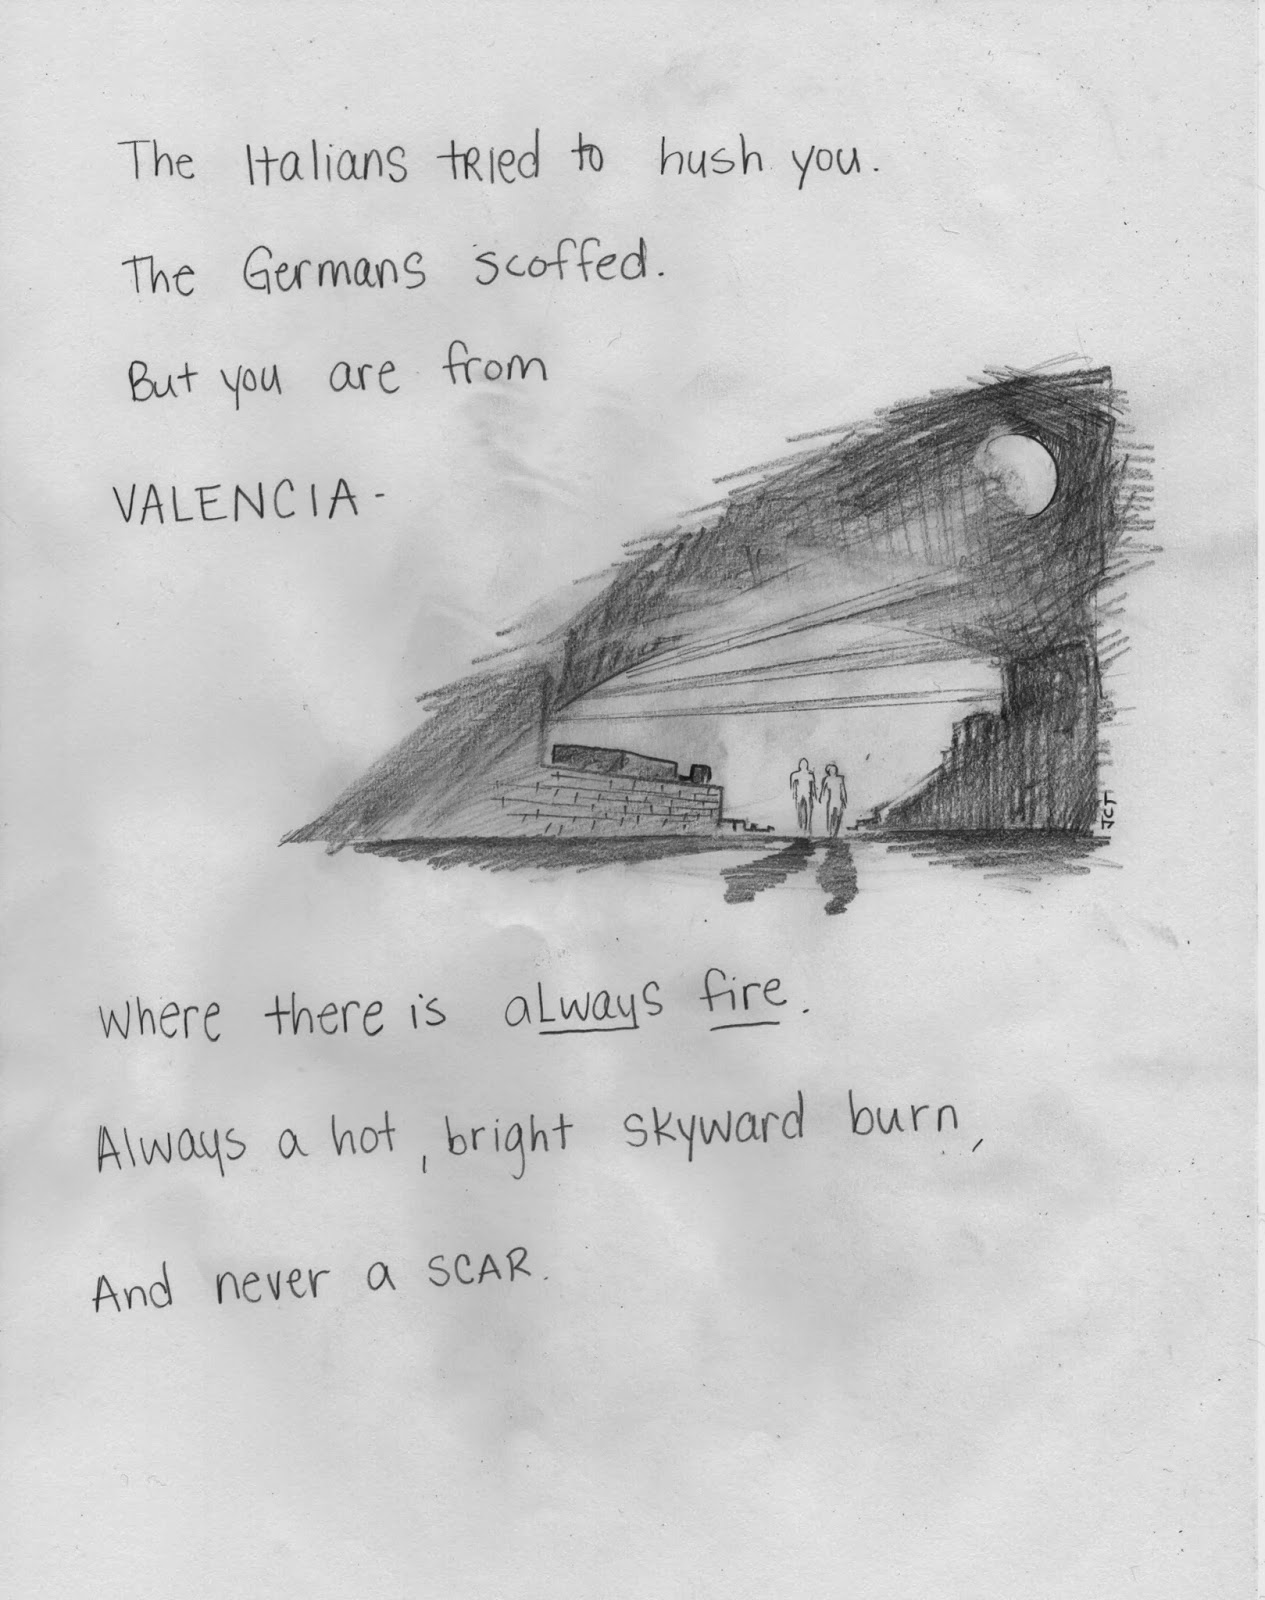 The Italians tried to hush you.
The Germans scoffed.
But you are from
VALENCIA-
JCT
Where there is always fire.
Always a hot, bright skyward burn,
And never a SCAR.